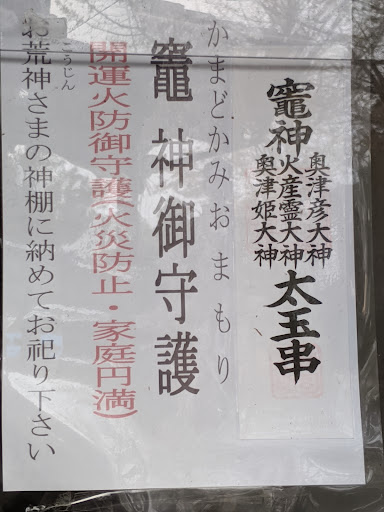 竈神
奥津彦大神
火産霊大神
奥津姫大神
太玉串
かまどかみおまもり
竈神御守護
開運火防御守護(火災防止・家庭円満)
こうじん
お荒神さまの神棚に納めてお祀り下さい